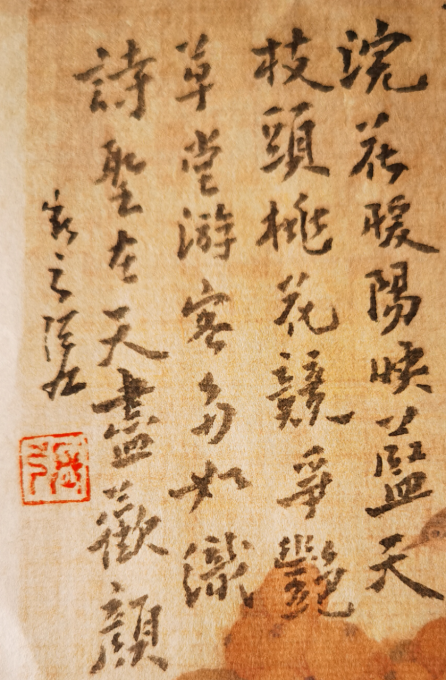 浣花暖陽映藍天
枝頭桃花競爭艷
草堂游客多如織
詩聖在天盡歡顏